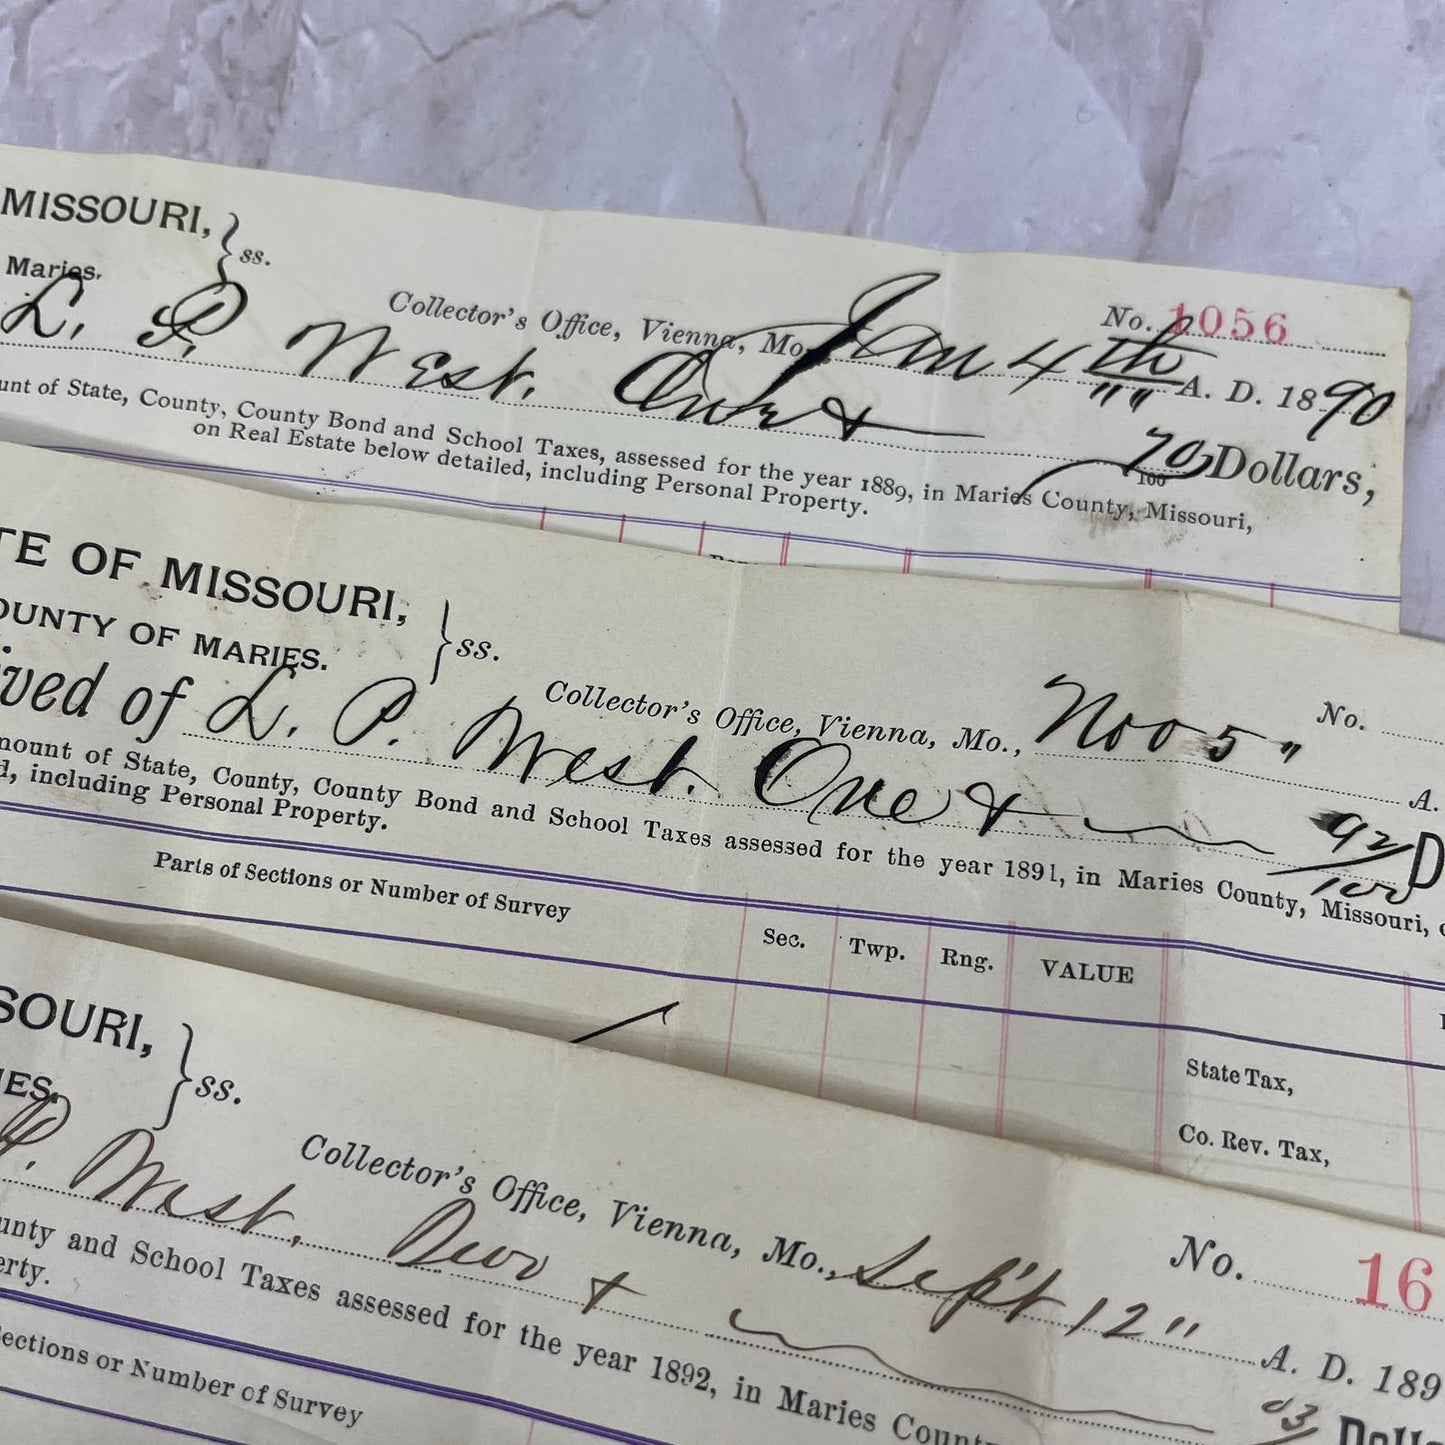 MISSOURI, } ss.
Maries.
No. 1056
Collector's Office, Vienna, Mo., Jan 4th A. D. 1890
L. P. West.
70/100 Dollars,
unt of State, County, County Bond and School Taxes, assessed for the year 1889, in Maries County, Missouri,
on Real Estate below detailed, including Personal Property.
TE OF MISSOURI, } ss.
OUNTY OF MARIES.
No.
Collector's Office, Vienna, Mo., Nov 5" A.
ived of L. P. West. One & 92/100 D
mount of State, County, County Bond and School Taxes assessed for the year 1891, in Maries County, Missouri,
d, including Personal Property.
Parts of Sections or Number of Survey Sec. Twp. Rng. VALUE
State Tax,
Co. Rev. Tax,
SOURI, } ss.
IES.
No. 16
Collector's Office, Vienna, Mo., Sept 12" A. D. 189
P. West. Two & 03/ Dolla
unty and School Taxes assessed for the year 1892, in Maries Count
erty.
ections or Number of Survey